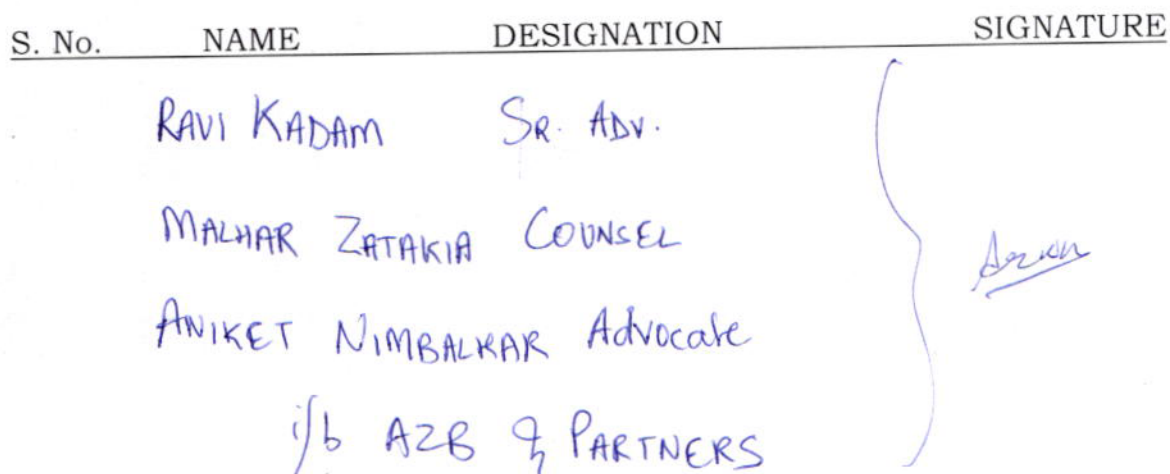 S. No. NAME DESIGNATION SIGNATURE
RAVI KADAM SR. ADV.
MALHAR ZATAKIA COUNSEL
ANIKET NIMBALKAR Advocate
i/b AZB & PARTNERS